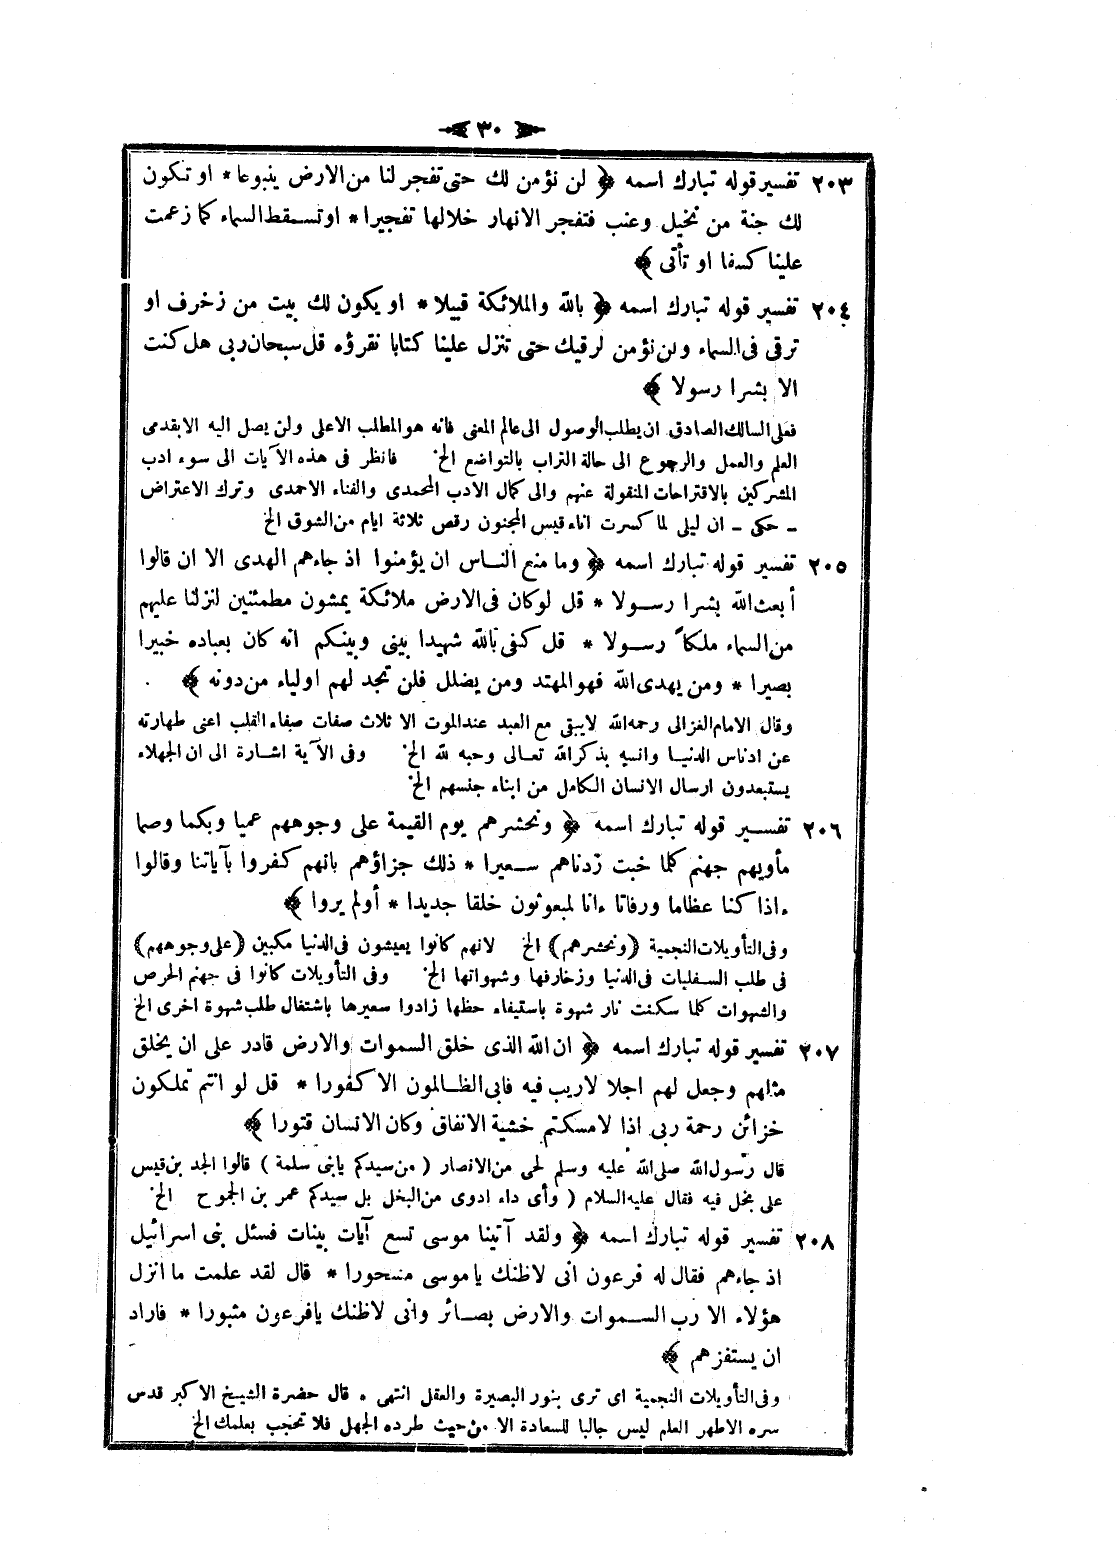 ٣٠
٢٠٣ تفسير قوله تبارك اسمه ﴿ لن نؤمن لك حتى تفجر لنا من الارض ينبوعا * او تكون
لك جنة من نخيل وعنب فتفجر الانهار خلالها تفجيرا * او تسقط السماء كما زعمت
علينا كسفا او تأتى ﴾
٢٠٤ تفسير قوله تبارك اسمه ﴿ بالله والملائكة قبيلا * او يكون لك بيت من زخرف او
ترقى فى السماء ولن نؤمن لرقيك حتى تنزل علينا كتابا نقرؤه قل سبحان ربى هل كنت
الا بشرا رسولا ﴾
فعلى السالك الصادق ان يطلب الوصول الى عالم المعنى فانه هو المطلب الاعلى ولن يصل اليه الا بقدمى
العلم والعمل والرجوع الى حالة التراب بالتواضع الخ فانظر فى هذه الآيات الى سوء ادب
المشركين بالاقتراحات المنقولة عنهم والى كمال الادب المحمدى والفناء الاحمدى وترك الاعتراض
ـ حكى ـ ان ليلى لما كسرت اناء قيس المجنون رقص ثلاثة ايام من الشوق الخ
٢٠٥ تفسير قوله تبارك اسمه ﴿ وما منع الناس ان يؤمنوا اذ جاءهم الهدى الا ان قالوا
أبعث الله بشرا رسولا * قل لوكان فى الارض ملائكة يمشون مطمئنين لنزلنا عليهم
من السماء ملكاً رسولا * قل كفى بالله شهيدا بينى وبينكم انه كان بعباده خبيرا
بصيرا * ومن يهدى الله فهو المهتد ومن يضلل فلن تجد لهم اولياء من دونه ﴾
وقال الامام الغزالى رحمه الله لايبقى مع العبد عند الموت الا ثلاث صفات صفاء القلب اعنى طهارته
عن ادناس الدنيا وانسه بذكر الله تعالى وحبه لله الخ وفى الآية اشارة الى ان الجهلاء
يستبعدون ارسال الانسان الكامل من ابناء جنسهم الخ
٢٠٦ تفسير قوله تبارك اسمه ﴿ ونحشرهم يوم القيمة على وجوههم عميا وبكما وصما
مأويهم جهنم كلما خبت زدناهم سعيرا * ذلك جزاؤهم بانهم كفروا بآياتنا وقالوا
ءاذا كنا عظاما ورفاتا ءانا لمبعوثون خلقا جديدا * أولم يروا ﴾
وفى التأويلات النجمية (ونحشرهم) الخ لانهم كانوا يعيشون فى الدنيا مكبين (على وجوههم)
فى طلب السفليات فى الدنيا وزخارفها وشهواتها الخ وفى التأويلات كانوا فى جهنم الحرص
والشهوات كلما سكنت نار شهوة باستيفاء حظها زادوا سعيرها باشتغال طلب شهوة اخرى الخ
٢٠٧ تفسير قوله تبارك اسمه ﴿ ان الله الذى خلق السموات والارض قادر على ان يخلق
مثلهم وجعل لهم اجلا لاريب فيه فابى الظالمون الا كفورا * قل لو انتم تملكون
خزائن رحمة ربى اذا لامسكتم خشية الانفاق وكان الانسان قتورا ﴾
قال رسول الله صلى الله عليه وسلم لحى من الانصار ( من سيدكم يابنى سلمة ) قالوا الجد بن قيس
على بخل فيه فقال عليه السلام ( وأى داء ادوى من البخل بل سيدكم عمر بن الجموح الخ
٢٠٨ تفسير قوله تبارك اسمه ﴿ ولقد آتينا موسى تسع آيات بينات فسئل بنى اسرائيل
اذ جاءهم فقال له فرعون انى لاظنك ياموسى مسحورا * قال لقد علمت ما انزل
هؤلاء الا رب السموات والارض بصائر وانى لاظنك يافرعون مثبورا * فاراد
ان يستفزهم ﴾
وفى التأويلات النجمية اى ترى بنور البصيرة والعقل انتهى . قال حضرة الشيخ الاكبر قدس
سره الاطهر العلم ليس جالبا للسعادة الا من حيث طرده الجهل فلا تحجب بعلمك الخ